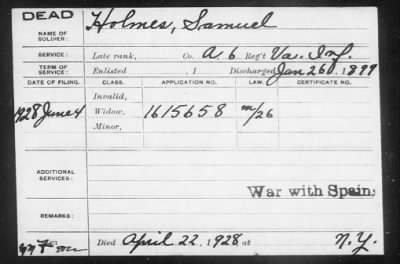 DEAD
NAME OF SOLDIER: Holmes, Samuel
SERVICE: Late rank, Co. A. 6 Reg't Va. Inf.
TERM OF SERVICE: Enlisted , 1 Discharged Jan 26, 1899
DATE OF FILING. CLASS. APPLICATION NO. LAW. CERTIFICATE NO.
Invalid,
1928 June 4 Widow, 1615658 m/26
Minor,
ADDITIONAL SERVICES:
War with Spain.
REMARKS:
Died April 22, 1928, at N.Y.